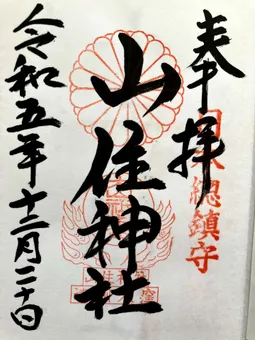 奉拝
山住神社
令和五年十二月二十日
總鎮守